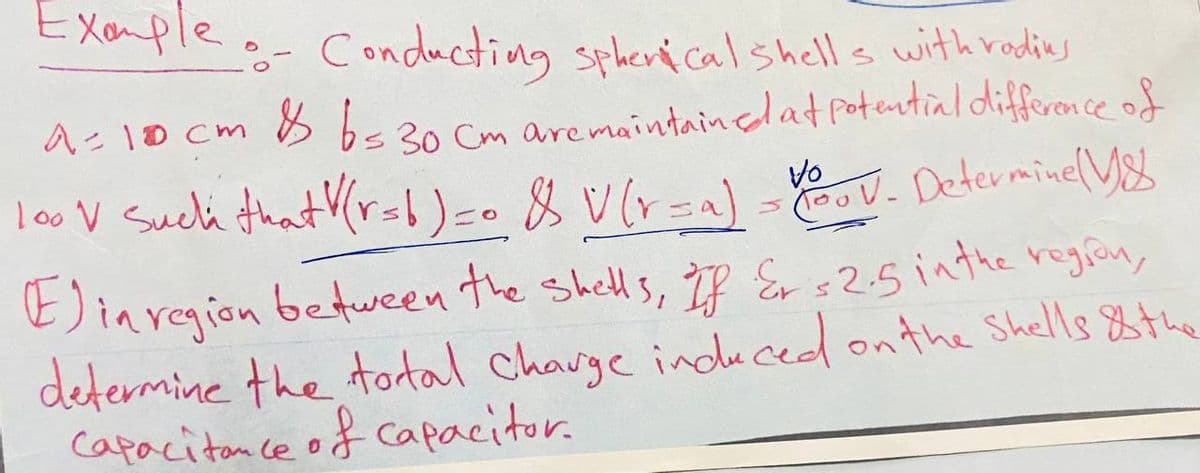 Example :- Conducting spherical shells with radius
a = 10 cm & b = 30 cm are maintained at potential difference of
100 V such that V(r=b) = 0 & V(r=a) = 100V. Determine (V) &
Vo
(E) in region between the shells, If Er = 2.5 in the region,
determine the total charge induced on the shells & the
capacitance of capacitor.